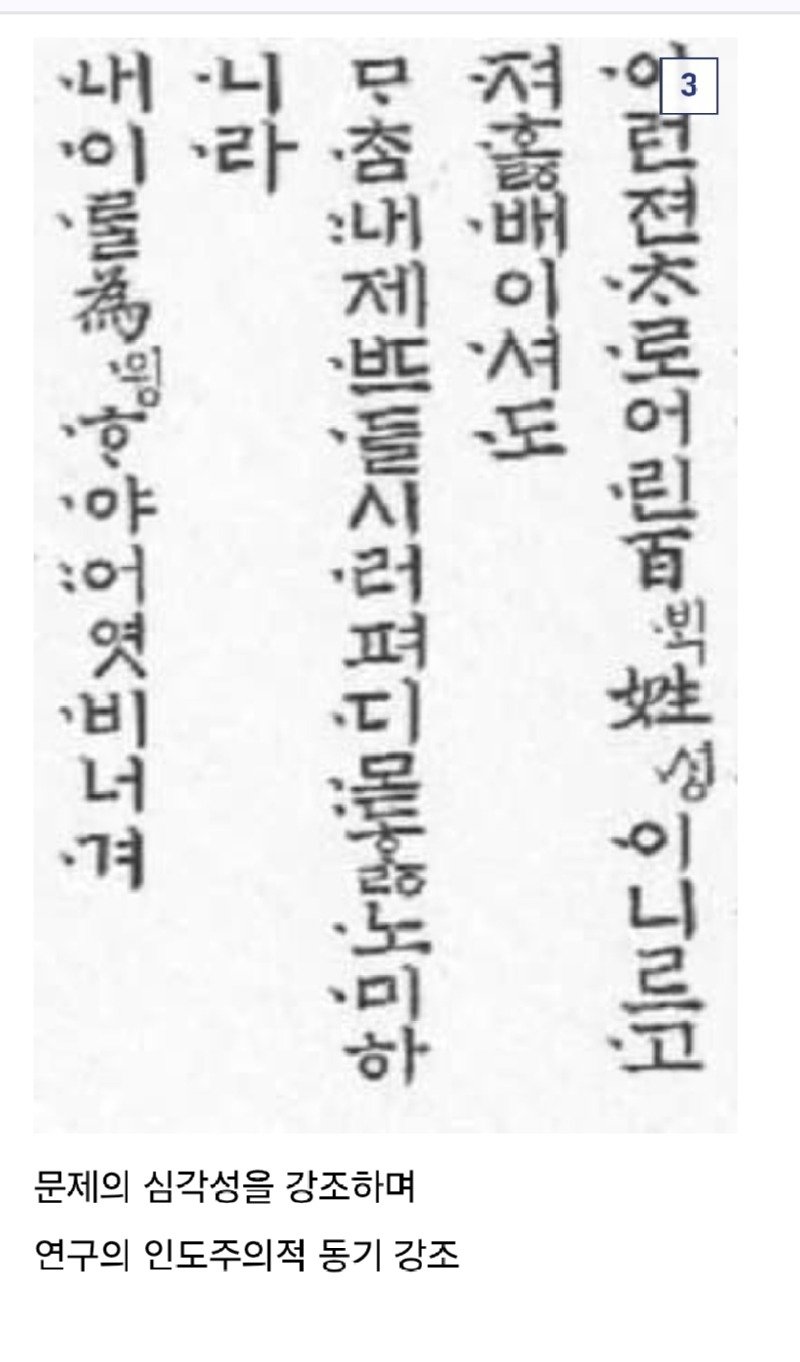 3
·이런젼·ᄎᆞ·로어·린百·ᄇᆡᆨ姓·셔ᇰ·이니르·고
·져·호ᇙ·배이·셔·도
ᄆᆞ·ᄎᆞᆷ:내제·ᄠᅳ·들시·러펴·디:몯ᄒᆞᇙ·노·미하
·니·라
·내·이·ᄅᆞᆯ為·윙·ᄒᆞ·야:어엿·비너·겨
문제의 심각성을 강조하며
연구의 인도주의적 동기 강조